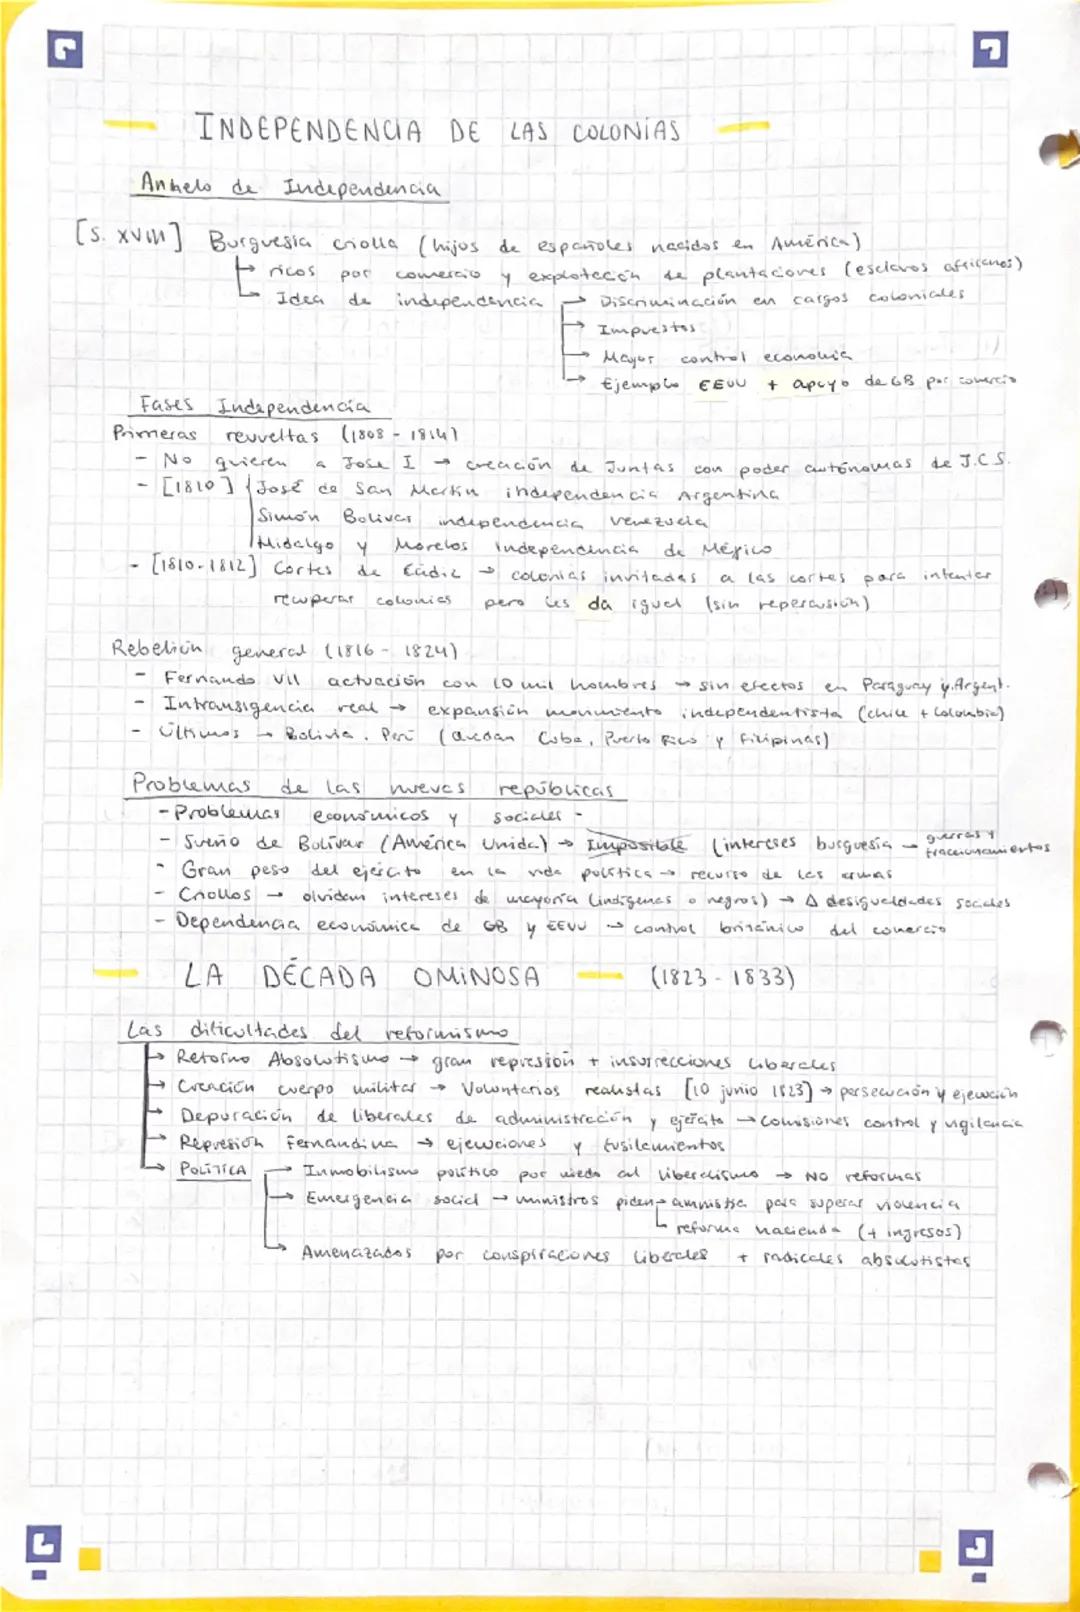 INDEPENDENCIA DE LAS COLONIAS
Anhelo de Independencia
[S. XVIII] Burguesía criolla (hijos de españoles nacidos en América)
↳ ricos por comercio y explotación de plantaciones (esclavos africanos)
↳ Idea de independencia → Discriminación en cargos coloniales
→ Impuestos
→ Mayor control economía
→ Ejemplo EEUU + apoyo de GB por comercio
Fases Independencia
Primeras revueltas (1808 - 1814)
- No quieren a Jose I → creación de Juntas con poder autónomas de J.C.S.
- [1810] José de San Martín independencia Argentina
Simón Bolivar independencia Venezuela
Hidalgo y Morelos independencia de Méjico
- [1810-1812] Cortes de Cádiz → colonias invitadas a las cortes para intentar
recuperar colonias pero les da igual (sin repercusión)
Rebelión general (1816 - 1824)
- Fernando VII actuación con 10 mil hombres → sin efectos en Paraguay y Argent.
- Intransigencia real → expansión movimiento independentista (chile + Colombia)
- Últimos → Bolivia, Perú (quedan Cuba, Puerto Rico y Filipinas)
Problemas de las nuevas repúblicas
- Problemas económicos y sociales -
- Sueño de Bolívar (América Unida) → Imposible (intereses burguesía → guerras y fraccionamientos
- Gran peso del ejército en la vida política → recurso de las armas
- Criollos → olvidan intereses de mayoría (indígenas o negros) → Δ desigualdades sociales
- Dependencia económica de GB y EEUU → control británico del comercio
LA DÉCADA OMINOSA (1823 - 1833)
Las dificultades del reformismo
→ Retorno Absolutismo → gran represión + insurrecciones liberales
→ Creación cuerpo militar → Voluntarios realistas [10 junio 1823] → persecución y ejecución
→ Depuración de liberales de administración y ejército → Comisiones control y vigilancia
→ Represión Fernandina → ejecuciones y fusilamientos
→ POLÍTICA → Inmobilismo político por miedo al liberalismo → NO reformas
→ Emergencia social → ministros piden → amnistía para superar violencia
↳ reforma hacienda (+ ingresos)
→ Amenazados por conspiraciones liberales + radicales absolutistas